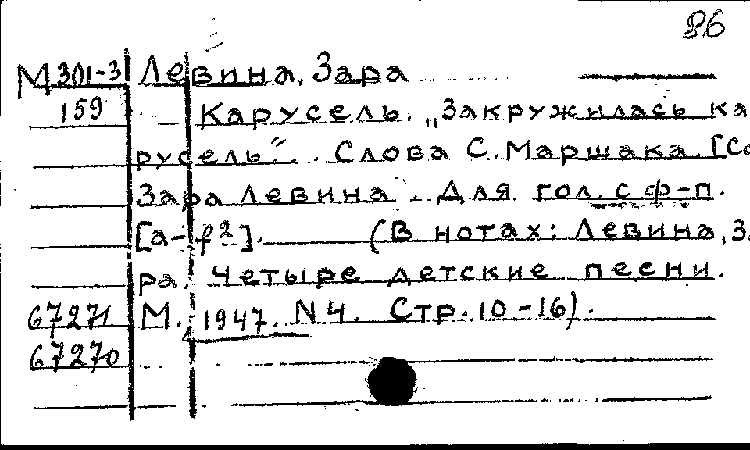 86
М 301-3 Левина, Зара
159 Карусель. „Закружилась ка
русель". Слова С. Маршака. [Со
Зара Левина. Для гол. с ф-п.
[a-f²]. (В нотах: Левина, За
ра. Четыре детские песни.
67271 М. 1947. N4. Стр. 10-16).
67270